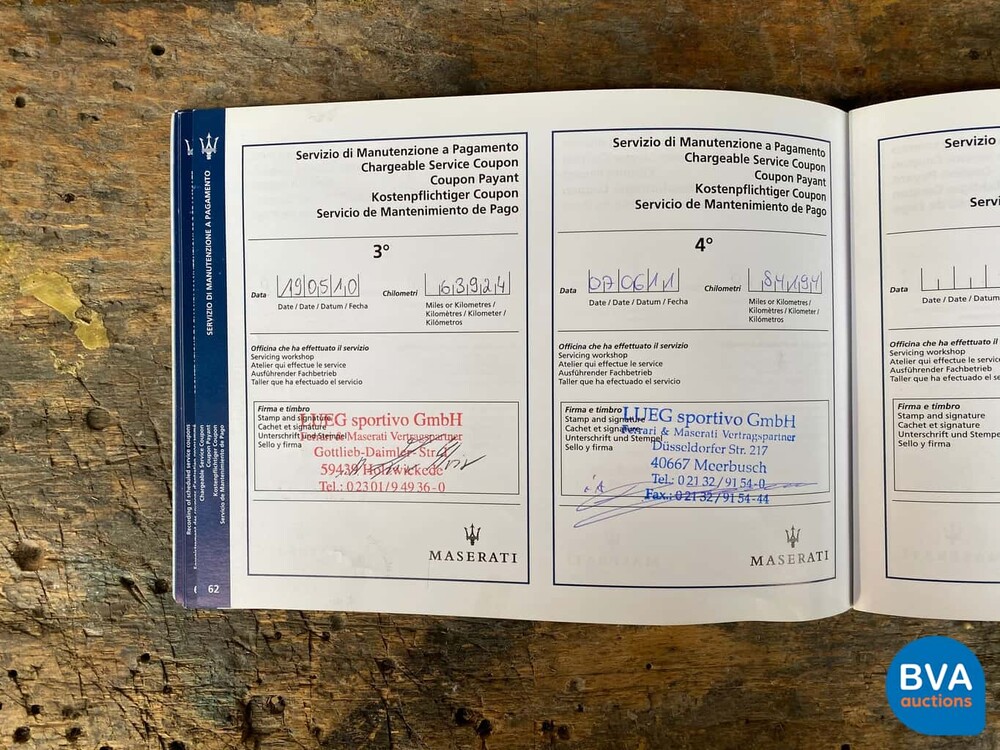 SERVIZIO DI MANUTENZIONE A PAGAMENTO
Recording of scheduled service coupons
Chargeable Service Coupon
Coupon Payant
Kostenpflichtiger Coupon
Servicio de Mantenimiento de Pago
62
Servizio di Manutenzione a Pagamento
Chargeable Service Coupon
Coupon Payant
Kostenpflichtiger Coupon
Servicio de Mantenimiento de Pago
3°
Data 190510 Chilometri 63924
Date / Date / Datum / Fecha
Miles or Kilometres /
Kilomètres / Kilometer /
Kilómetros
Officina che ha effettuato il servizio
Servicing workshop
Atelier qui effectue le service
Ausführender Fachbetrieb
Taller que ha efectuado el servicio
Firma e timbro
Stamp and signature
Cachet et signature
Unterschrift und Stempel
Sello y firma
LUEG sportivo GmbH
Ferrari & Maserati Vertragspartner
Gottlieb-Daimler-Str.
59439 Holzwickede
Tel.: 0 23 01 / 9 49 36-0
MASERATI
Servizio di Manutenzione a Pagamento
Chargeable Service Coupon
Coupon Payant
Kostenpflichtiger Coupon
Servicio de Mantenimiento de Pago
4°
Data 070611 Chilometri 84194
Date / Date / Datum / Fecha
Miles or Kilometres /
Kilomètres / Kilometer /
Kilómetros
Officina che ha effettuato il servizio
Servicing workshop
Atelier qui effectue le service
Ausführender Fachbetrieb
Taller que ha efectuado el servicio
Firma e timbro
Stamp and signature
Cachet et signature
Unterschrift und Stempel
Sello y firma
LUEG sportivo GmbH
Ferrari & Maserati Vertragspartner
Düsseldorfer Str. 217
40667 Meerbusch
Tel.: 0 21 32 / 91 54-0
Fax.: 0 21 32 / 91 54-44
i.A
MASERATI
Servizio
Servi
Data
Date / Date / Datum
Officina che ha effettuato
Servicing workshop
Atelier qui effectue le
Ausführender Fachbetrieb
Taller que ha efectuado
Firma e timbro
Stamp and signature
Cachet et signature
Unterschrift und Stempel
Sello y firma
BVA
auctions